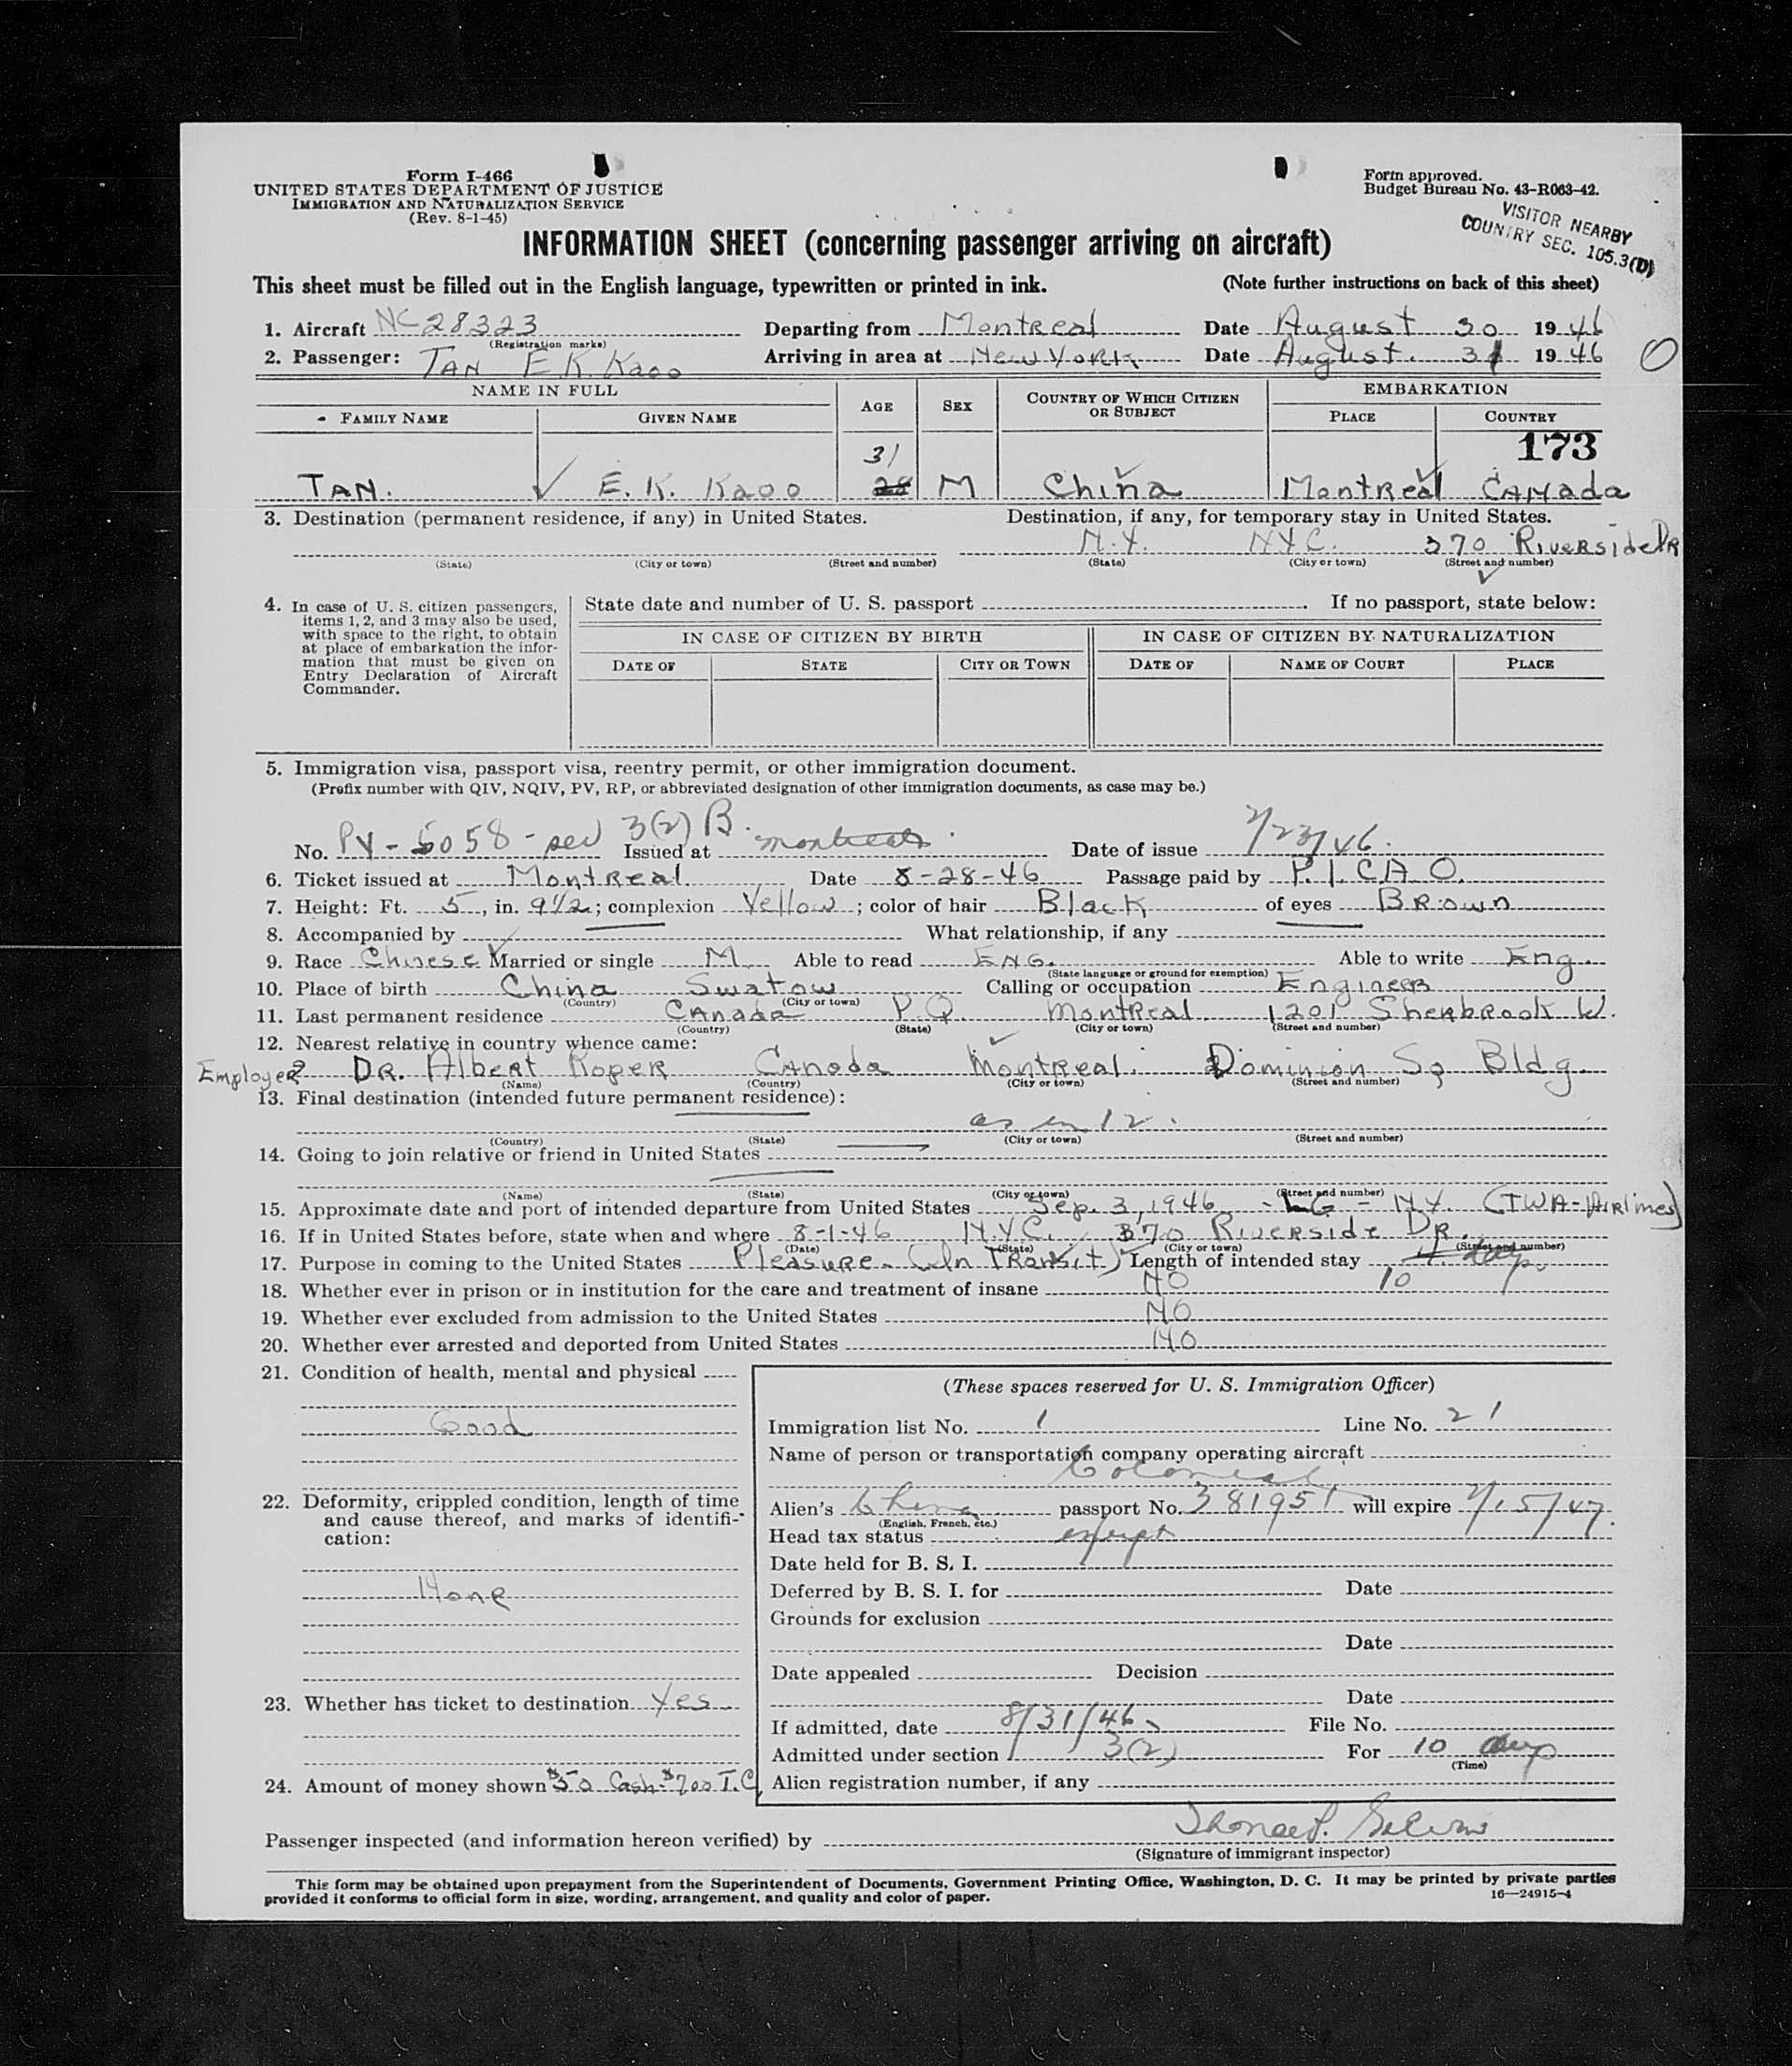 Form I-466
UNITED STATES DEPARTMENT OF JUSTICE
IMMIGRATION AND NATURALIZATION SERVICE
(Rev. 8-1-45)
Form approved.
Budget Bureau No. 43-R063-42.
VISITOR NEARBY
COUNTRY SEC. 105.3(D)
INFORMATION SHEET (concerning passenger arriving on aircraft)
This sheet must be filled out in the English language, typewritten or printed in ink. (Note further instructions on back of this sheet)
1. Aircraft NC28323 Departing from Montreal Date August 30 1946
(Registration marks)
2. Passenger: TAN E.K. Kaoo Arriving in area at New York Date August. 31 1946 O
NAME IN FULL AGE SEX COUNTRY OF WHICH CITIZEN OR SUBJECT EMBARKATION
FAMILY NAME GIVEN NAME PLACE COUNTRY
173
31
TAN. E. K. Kaoo 28 M China Montreal CANada
3. Destination (permanent residence, if any) in United States. Destination, if any, for temporary stay in United States.
N.Y. NYC. 370 RiversideDR
(State) (City or town) (Street and number) (State) (City or town) (Street and number)
4. In case of U. S. citizen passengers, items 1, 2, and 3 may also be used, with space to the right, to obtain at place of embarkation the information that must be given on Entry Declaration of Aircraft Commander.
State date and number of U. S. passport . If no passport, state below:
IN CASE OF CITIZEN BY BIRTH IN CASE OF CITIZEN BY NATURALIZATION
DATE OF STATE CITY OR TOWN DATE OF NAME OF COURT PLACE
5. Immigration visa, passport visa, reentry permit, or other immigration document.
(Prefix number with QIV, NQIV, PV, RP, or abbreviated designation of other immigration documents, as case may be.)
No. PV-5058-sec 3(2) B. Issued at montreal Date of issue 7/23/46.
6. Ticket issued at Montreal Date 8-28-46 Passage paid by P.I.C.A.O.
7. Height: Ft. 5, in. 9 1/2; complexion Yellow; color of hair Black of eyes Brown
8. Accompanied by What relationship, if any
9. Race Chinese Married or single M Able to read ENG. Able to write Eng.
(State language or ground for exemption)
10. Place of birth China Swatow Calling or occupation Engineer
(Country) (City or town)
11. Last permanent residence Canada P.Q. Montreal 1201 Sherbrook W.
(Country) (State) (City or town) (Street and number)
12. Nearest relative in country whence came:
Employer? DR. Albert Roper Canada Montreal. Dominion Sq Bldg.
(Name) (Country) (City or town) (Street and number)
13. Final destination (intended future permanent residence):
as in 12.
(Country) (State) (City or town) (Street and number)
14. Going to join relative or friend in United States
(Name) (State) (City or town) (Street and number)
15. Approximate date and port of intended departure from United States Sep. 3, 1946 - LG - N.Y. (TWA-Airlines)
16. If in United States before, state when and where 8-1-46 N.Y.C. 370 Riverside DR.
(Date) (State) (City or town) (Street and number)
17. Purpose in coming to the United States Pleasure. (In Transit) Length of intended stay 4 days
10
18. Whether ever in prison or in institution for the care and treatment of insane NO
19. Whether ever excluded from admission to the United States NO
20. Whether ever arrested and deported from United States NO
21. Condition of health, mental and physical
Good
22. Deformity, crippled condition, length of time and cause thereof, and marks of identification:
None
23. Whether has ticket to destination Yes
24. Amount of money shown $50 Cash-$700 T.C.
(These spaces reserved for U. S. Immigration Officer)
Immigration list No. 1 Line No. 21
Name of person or transportation company operating aircraft
Colonial
Alien's China passport No. 381951 will expire 7/15/47.
(English, French, etc.)
Head tax status exempt
Date held for B. S. I.
Deferred by B. S. I. for Date
Grounds for exclusion
Date
Date appealed Decision
Date
If admitted, date 8/31/46 File No.
Admitted under section 3(2) For 10 days
(Time)
Alien registration number, if any
Passenger inspected (and information hereon verified) by
(Signature of immigrant inspector)
This form may be obtained upon prepayment from the Superintendent of Documents, Government Printing Office, Washington, D. C. It may be printed by private parties
provided it conforms to official form in size, wording, arrangement, and quality and color of paper. 16—24915-4